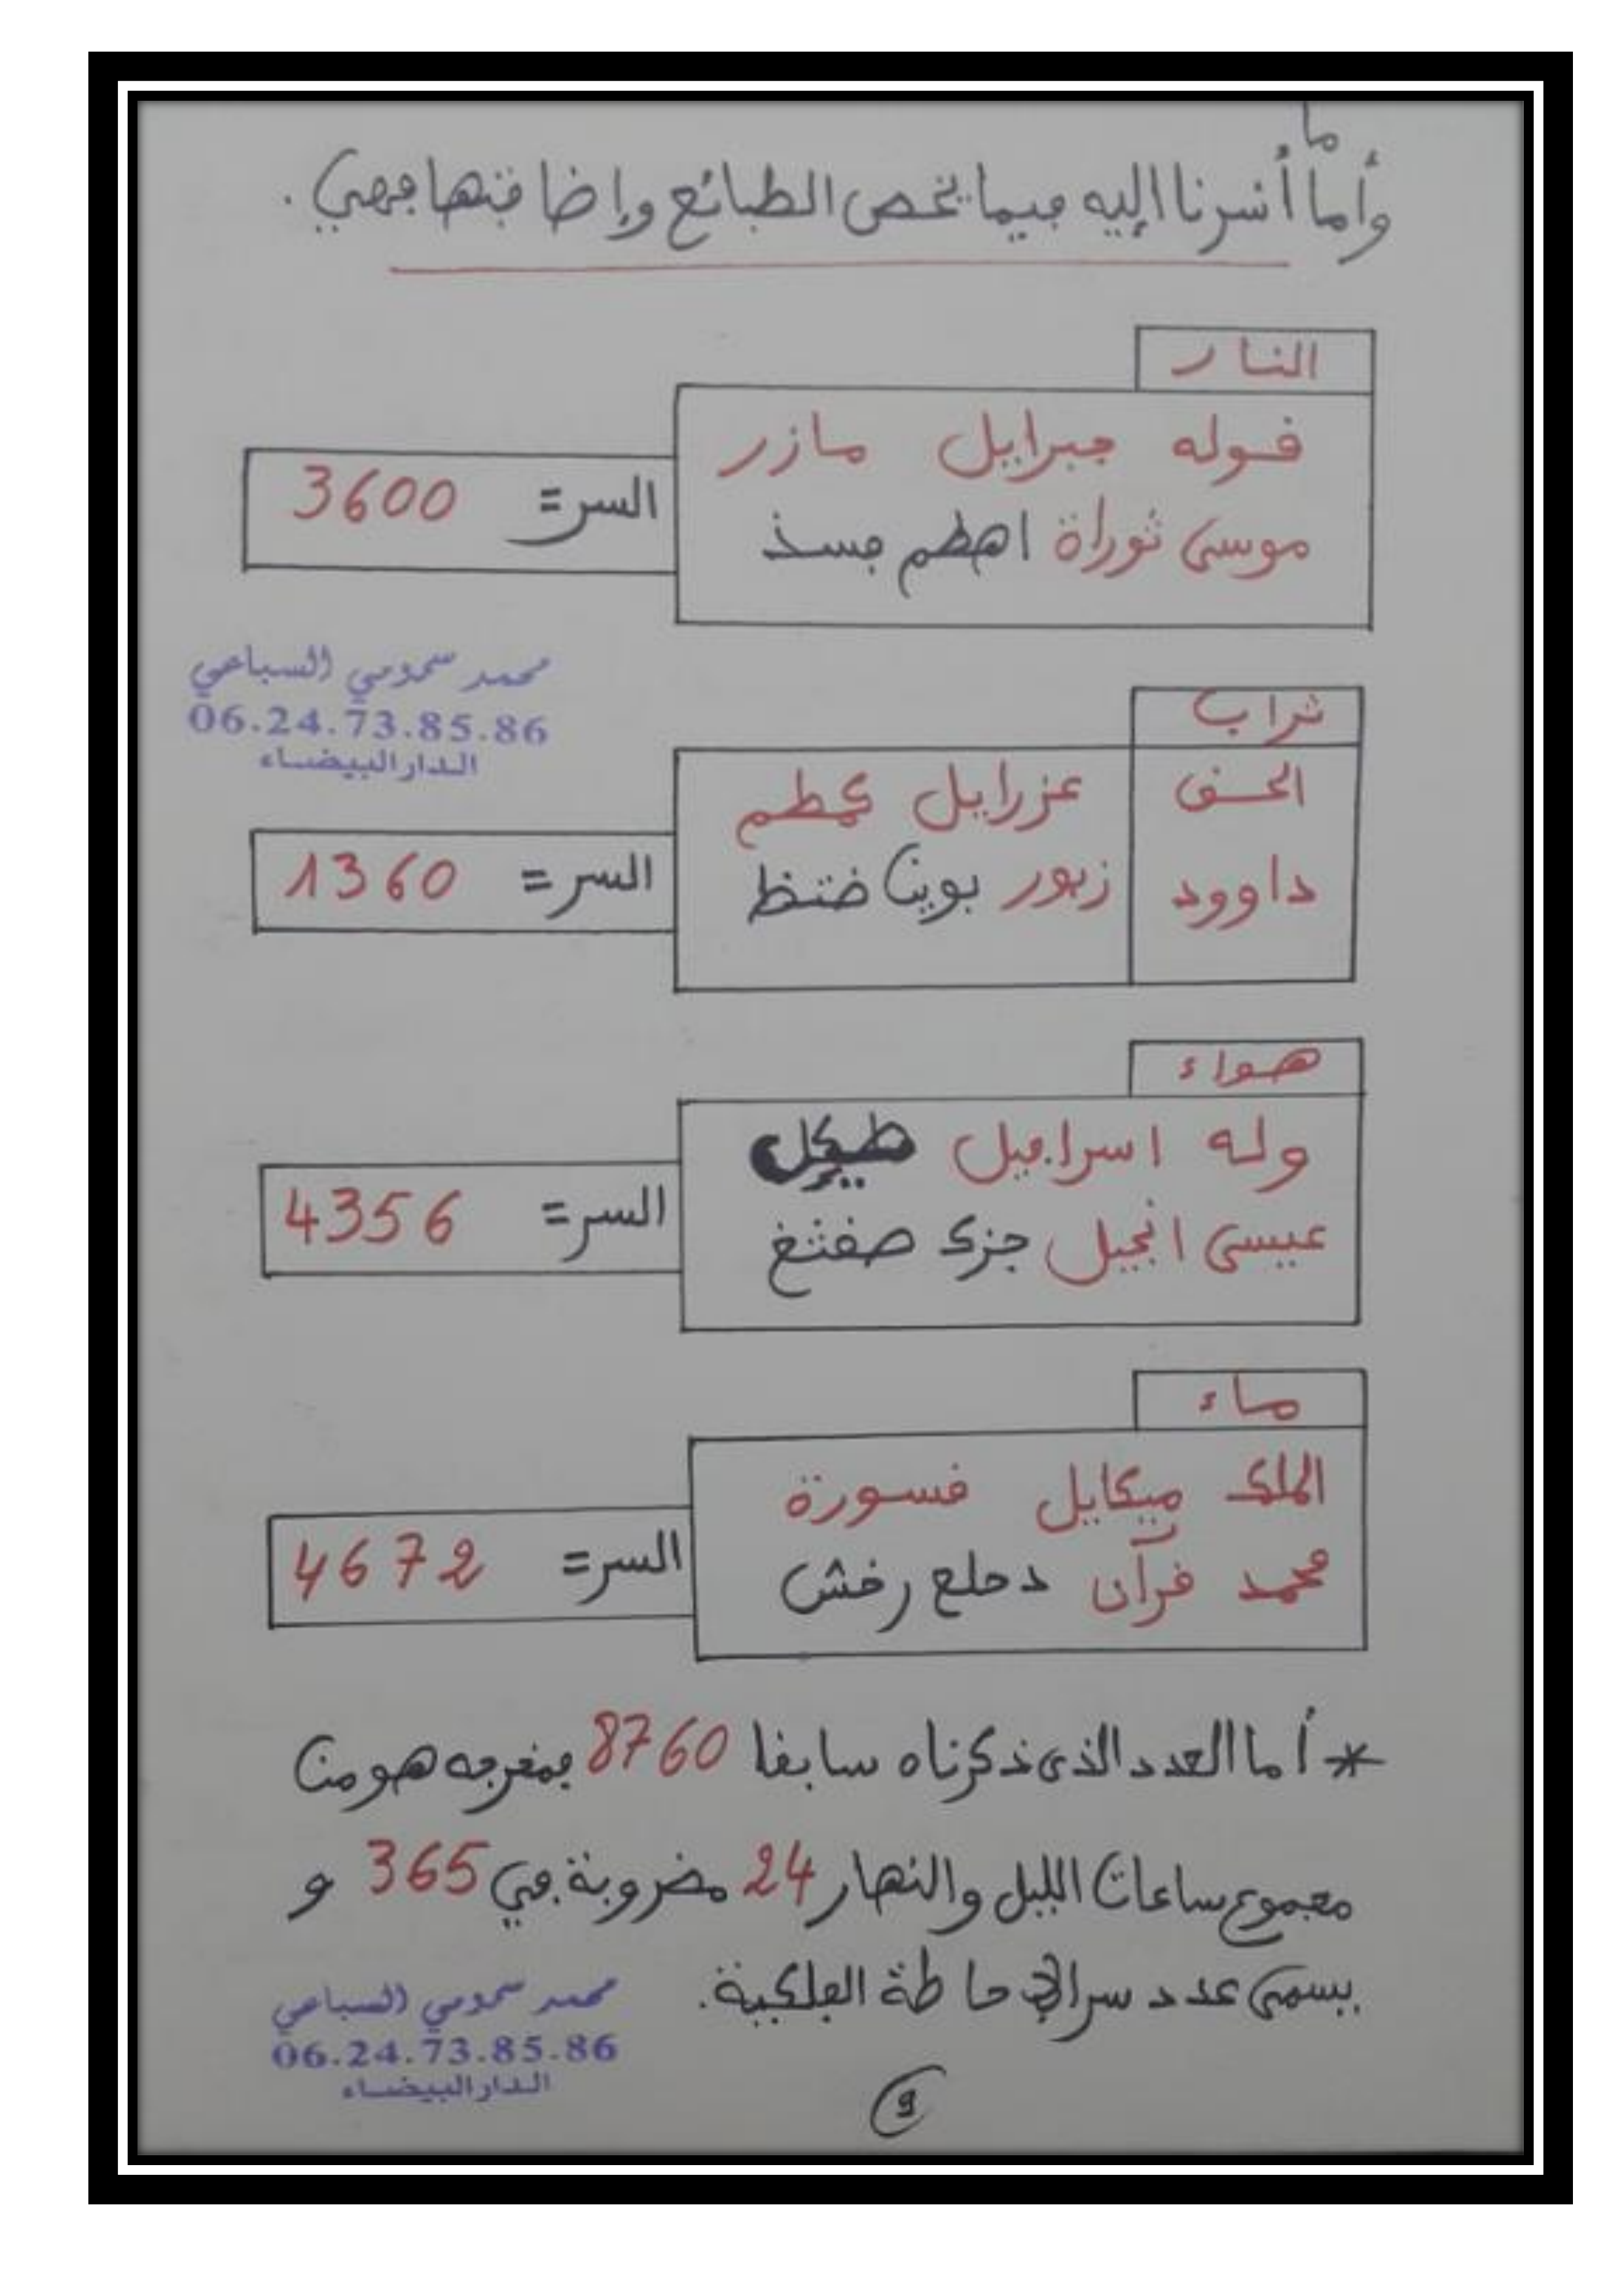 وأما ما أشرنا إليه فيما يخص الطبائع وإضافتها فهي.
النار
قوله جبرايل مازر
موسى توراة اهطم فسذ
السر = 3600
محمد سمومي السباعي
06.24.73.85.86
الدار البيضاء
تراب
الحق عزرايل كهطم
داوود زبور بوين ضتظ
السر = 1360
هواء
وله اسرافيل طيكل
عيسى انجيل جزك صفتغ
السر = 4356
ماء
الملك ميكايل قسورة
محمد قرآن دحلع رخش
السر = 4672
* أما العدد الذي ذكرناه سابقا 8760 فمخرجه هو من
مجموع ساعات الليل والنهار 24 مضروبة في 365 و
يسمى عدد سر الإحاطة الفلكية.
محمد سمومي السباعي
06.24.73.85.86
الدار البيضاء
9